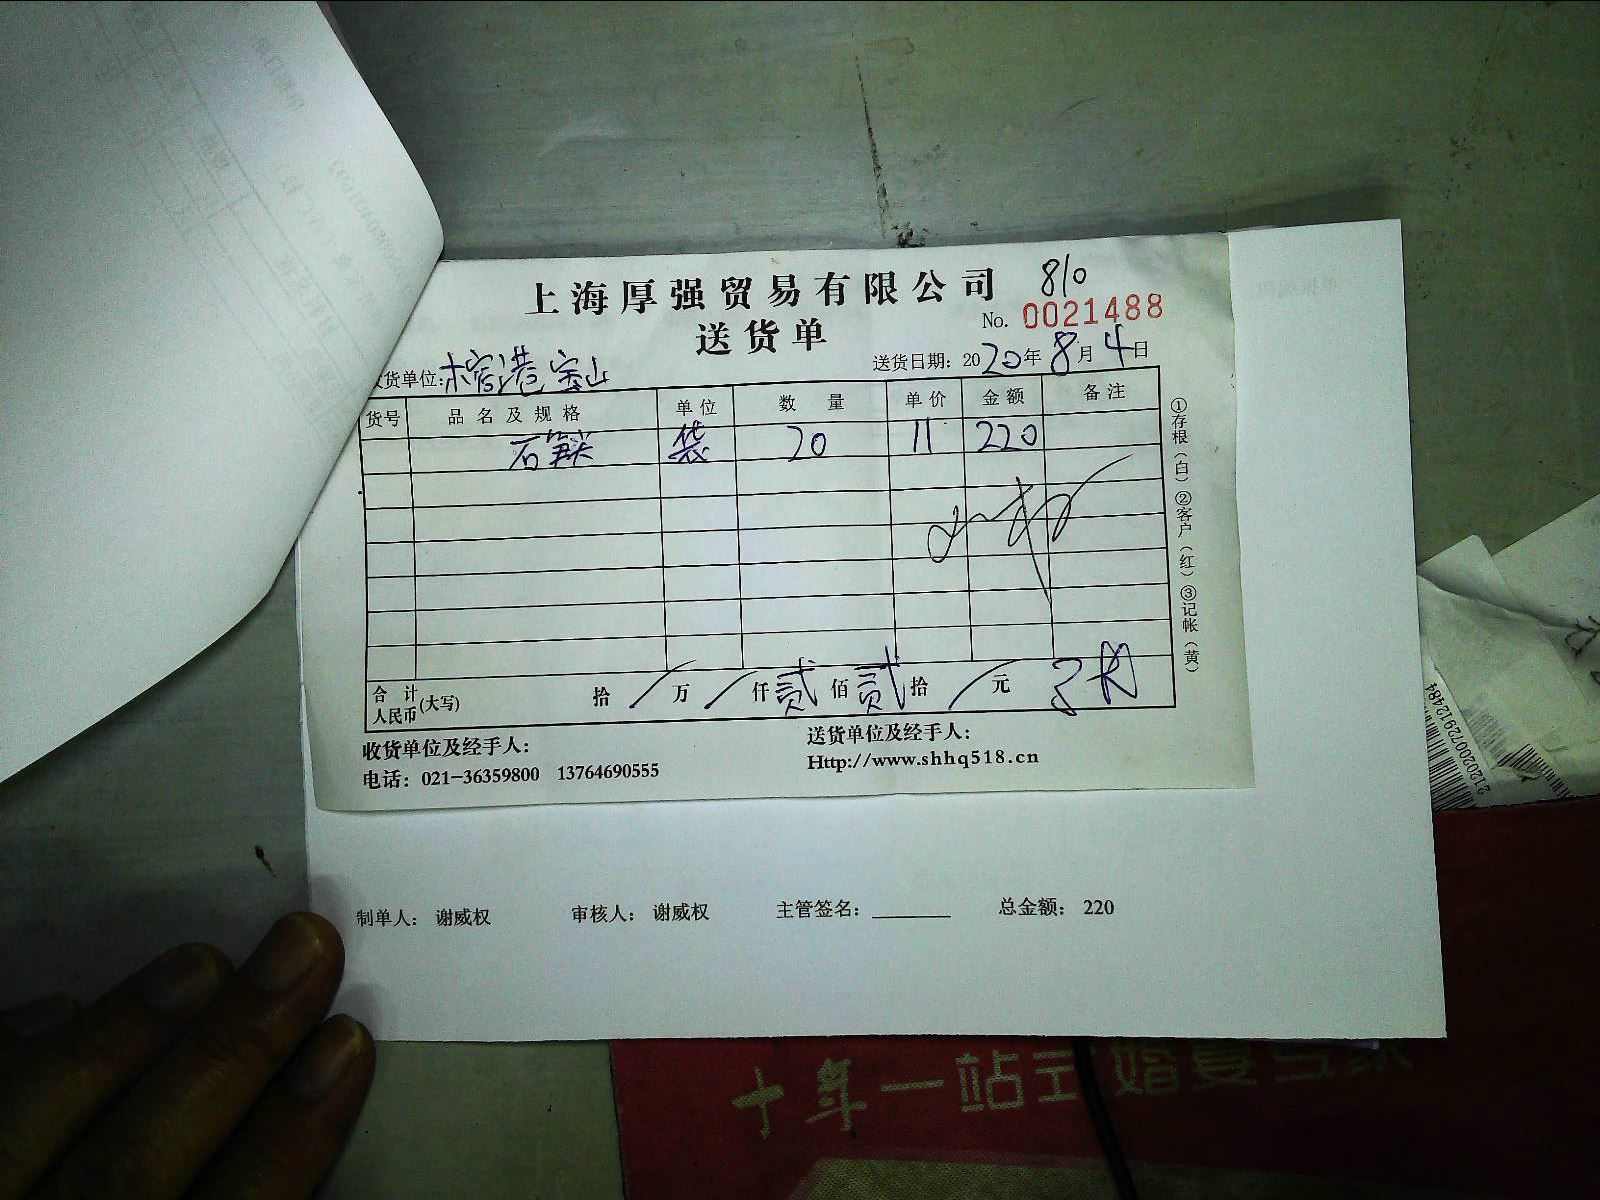 上海厚强贸易有限公司 810
送货单 No. 0021488
收货单位: 港宝山 送货日期: 2020年8月4日
货号 品名及规格 单位 数量 单价 金额 备注
石 袋 20 11 220
合计人民币(大写) 拾/万/仟贰佰贰拾/元
①存根(白)②客户(红)③记帐(黄)
收货单位及经手人: 送货单位及经手人:
电话: 021-36359800 13764690555 Http://www.shhq518.cn
制单人: 谢威权 审核人: 谢威权 主管签名: 总金额: 220
212020072912484
十年一站式婚宴专家